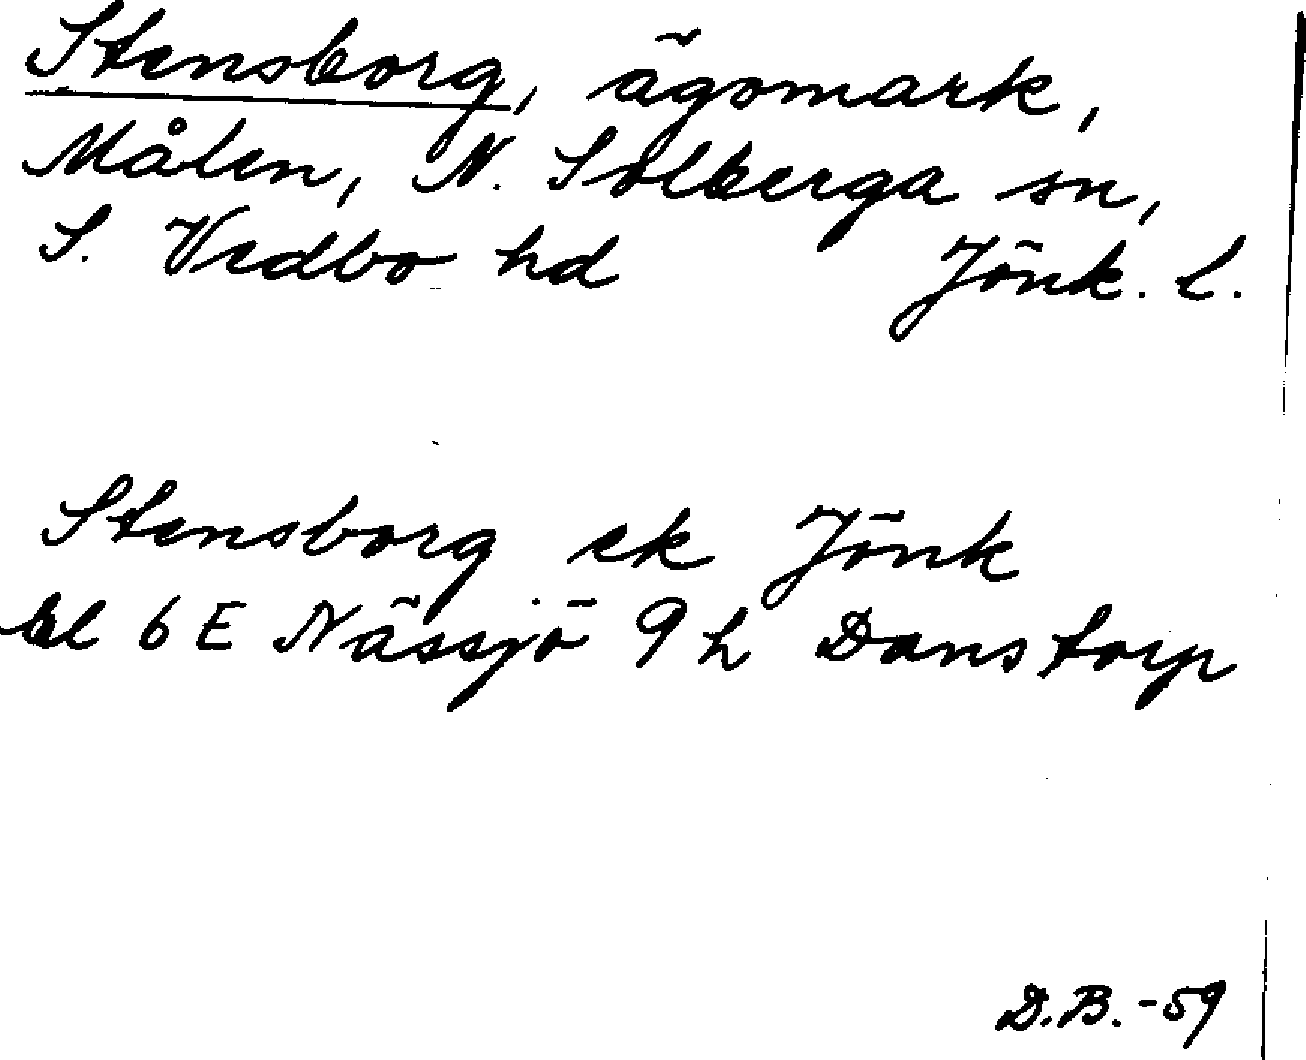 Stensborg, ägomark,
Målen, N. Solberga sn,
S. Vedbo hd Jönk. l.
Stensborg ek Jönk
bl 6 E Nässjö 9 h Danstorp
D.B. -59